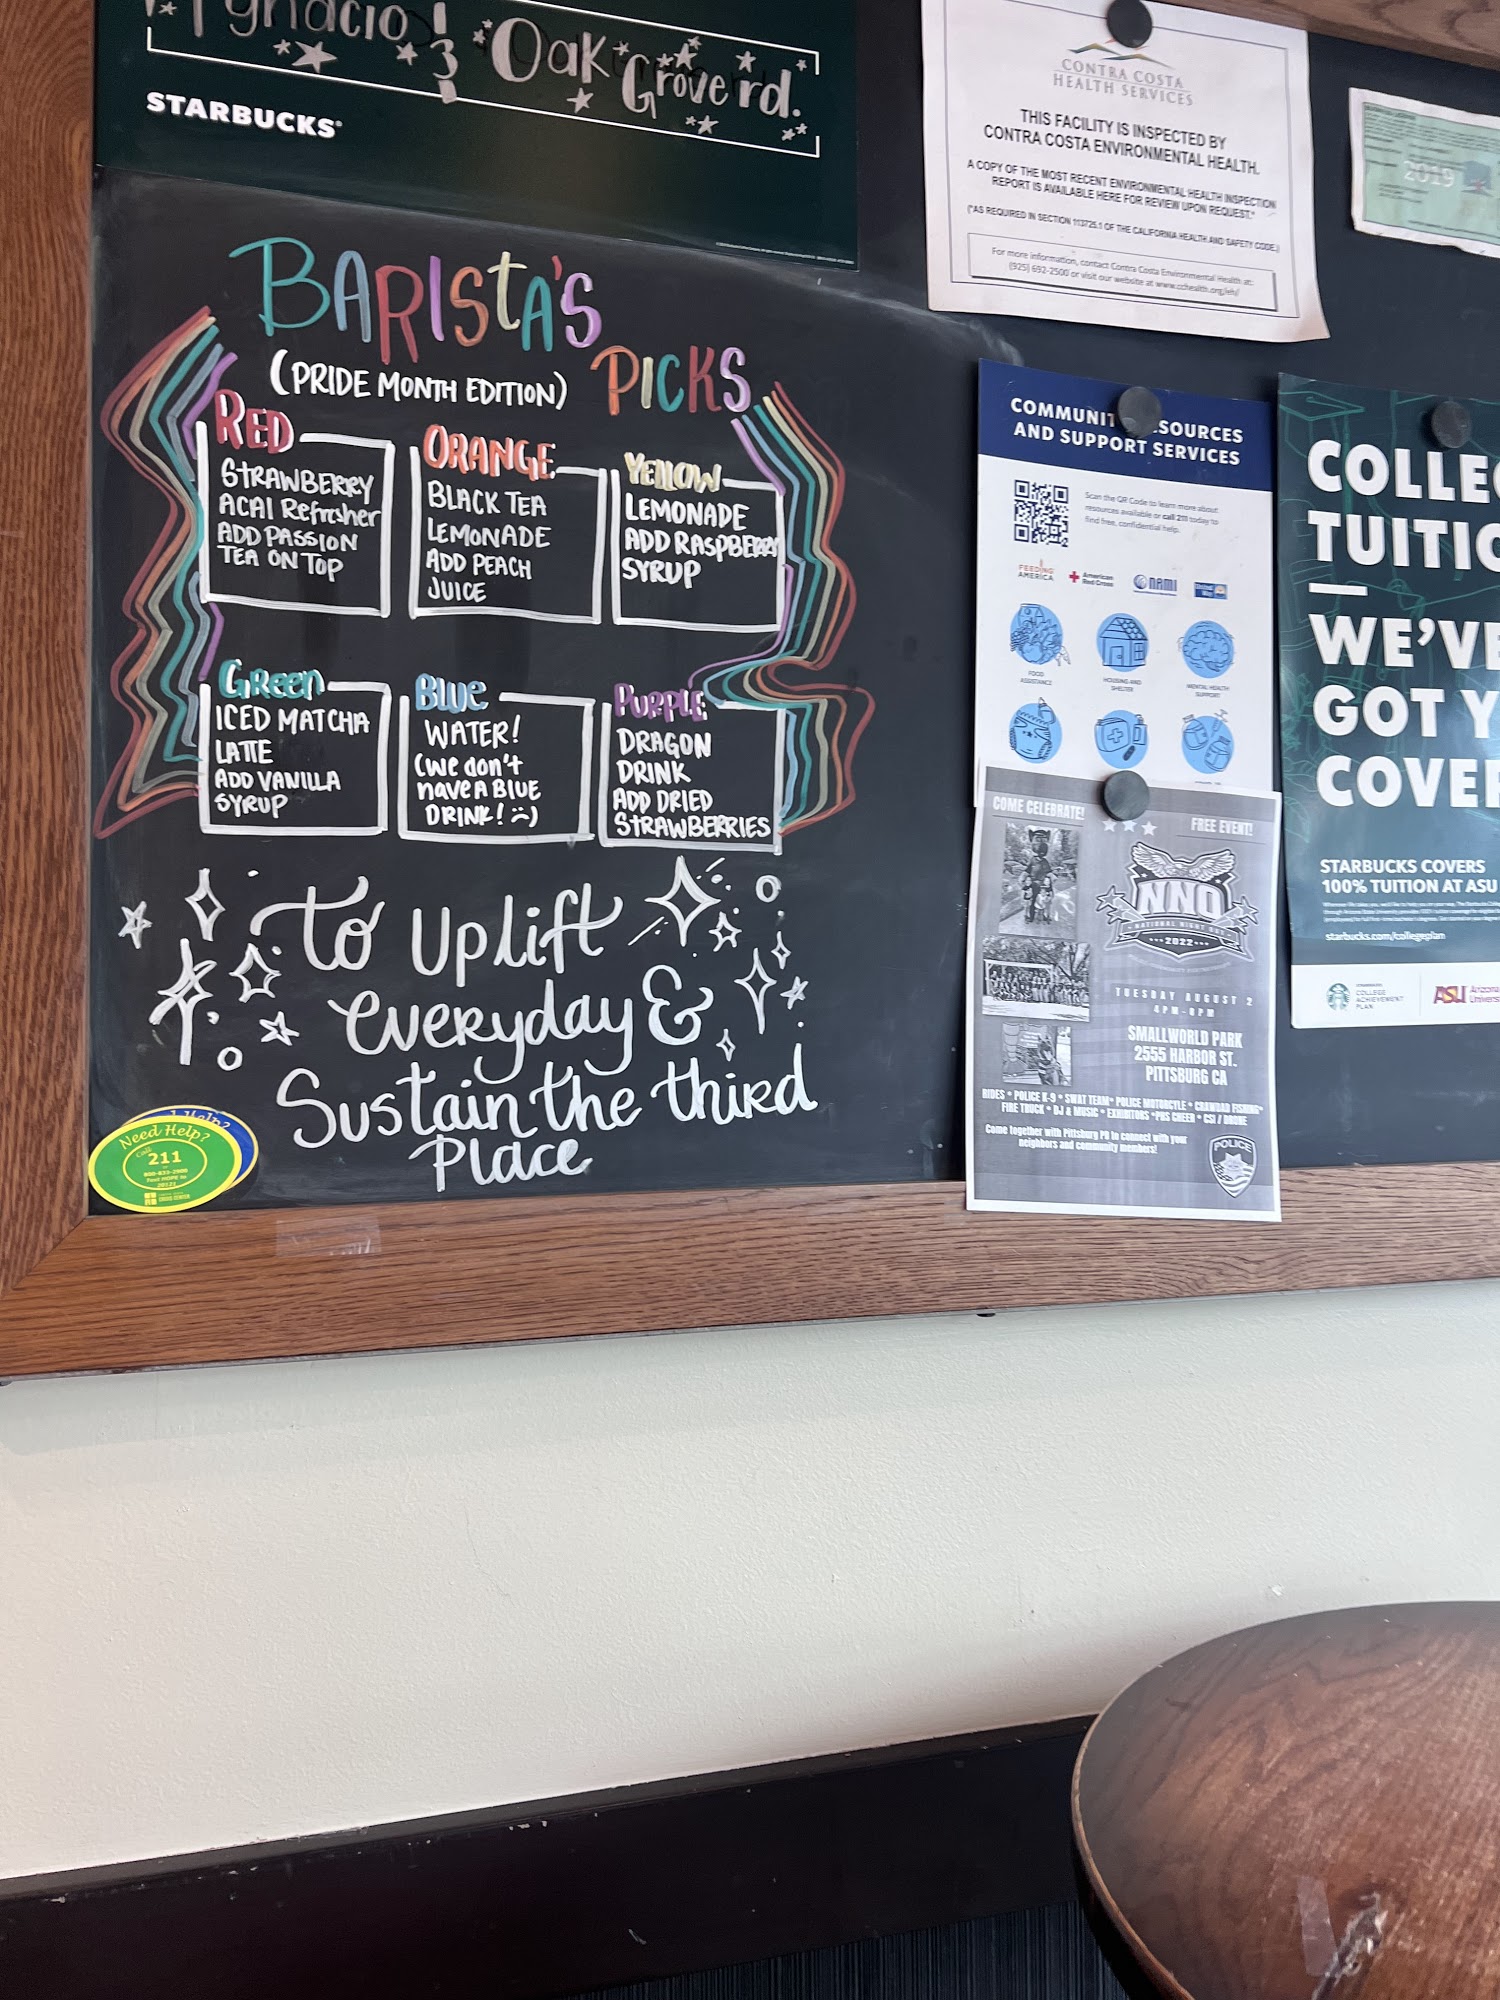 Ygnacio & Oak Grove rd.
STARBUCKS®
BARISTA'S
PICKS
(PRIDE MONTH EDITION)
RED
STRAWBERRY
ACAI Refresher
ADD PASSION
TEA ON TOP
ORANGE
BLACK TEA
LEMONADE
ADD PEACH
JUICE
YELLOW
LEMONADE
ADD RASPBERRY
SYRUP
GREEN
ICED MATCHA
LATTE
ADD VANILLA
SYRUP
BLUE
WATER!
(we don't
have A BLUE
DRINK! :()
PURPLE
DRAGON
DRINK
ADD DRIED
STRAWBERRIES
To Uplift
everyday &
Sustain the third
Place
Need Help?
Need Help?
Call
211
or
800-833-2900
Text HOPE to
20121
CRISIS CENTER
CONTRA COSTA
HEALTH SERVICES
THIS FACILITY IS INSPECTED BY
CONTRA COSTA ENVIRONMENTAL HEALTH.
A COPY OF THE MOST RECENT ENVIRONMENTAL HEALTH INSPECTION
REPORT IS AVAILABLE HERE FOR REVIEW UPON REQUEST.*
(*AS REQUIRED IN SECTION 113725.1 OF THE CALIFORNIA HEALTH AND SAFETY CODE.)
For more information, contact Contra Costa Environmental Health at:
(925) 692-2500 or visit our website at www.cchealth.org/eh/
2019
COMMUNIT SOURCES
AND SUPPORT SERVICES
Scan the QR Code to learn more about
resources available or call 211 today to
find free, confidential help.
FEEDING
AMERICA
American
Red Cross
NAMI
United
Way
FOOD
ASSISTANCE
HOUSING AND
SHELTER
MENTAL HEALTH
SUPPORT
COME CELEBRATE!
FREE EVENT!
NNO
NATIONAL NIGHT OUT
2022
POLICE COMMUNITY PARTNERSHIPS
TUESDAY AUGUST 2
4PM-8PM
SMALLWORLD PARK
2555 HARBOR ST.
PITTSBURG CA
RIDES * POLICE K-9 * SWAT TEAM * POLICE MOTORCYLE * CRAWDAD FISHING*
FIRE TRUCK * DJ & MUSIC * EXHIBITORS *PHS CHEER * CSI / DRONE
Come together with Pittsburg PD to connect with your
neighbors and community members!
POLICE
COLLE
TUITIO
—
WE'VE
GOT Y
COVER
STARBUCKS COVERS
100% TUITION AT ASU
starbucks.com/collegeplan
STARBUCKS
COLLEGE
ACHIEVEMENT
PLAN
ASU
Arizona
Univers